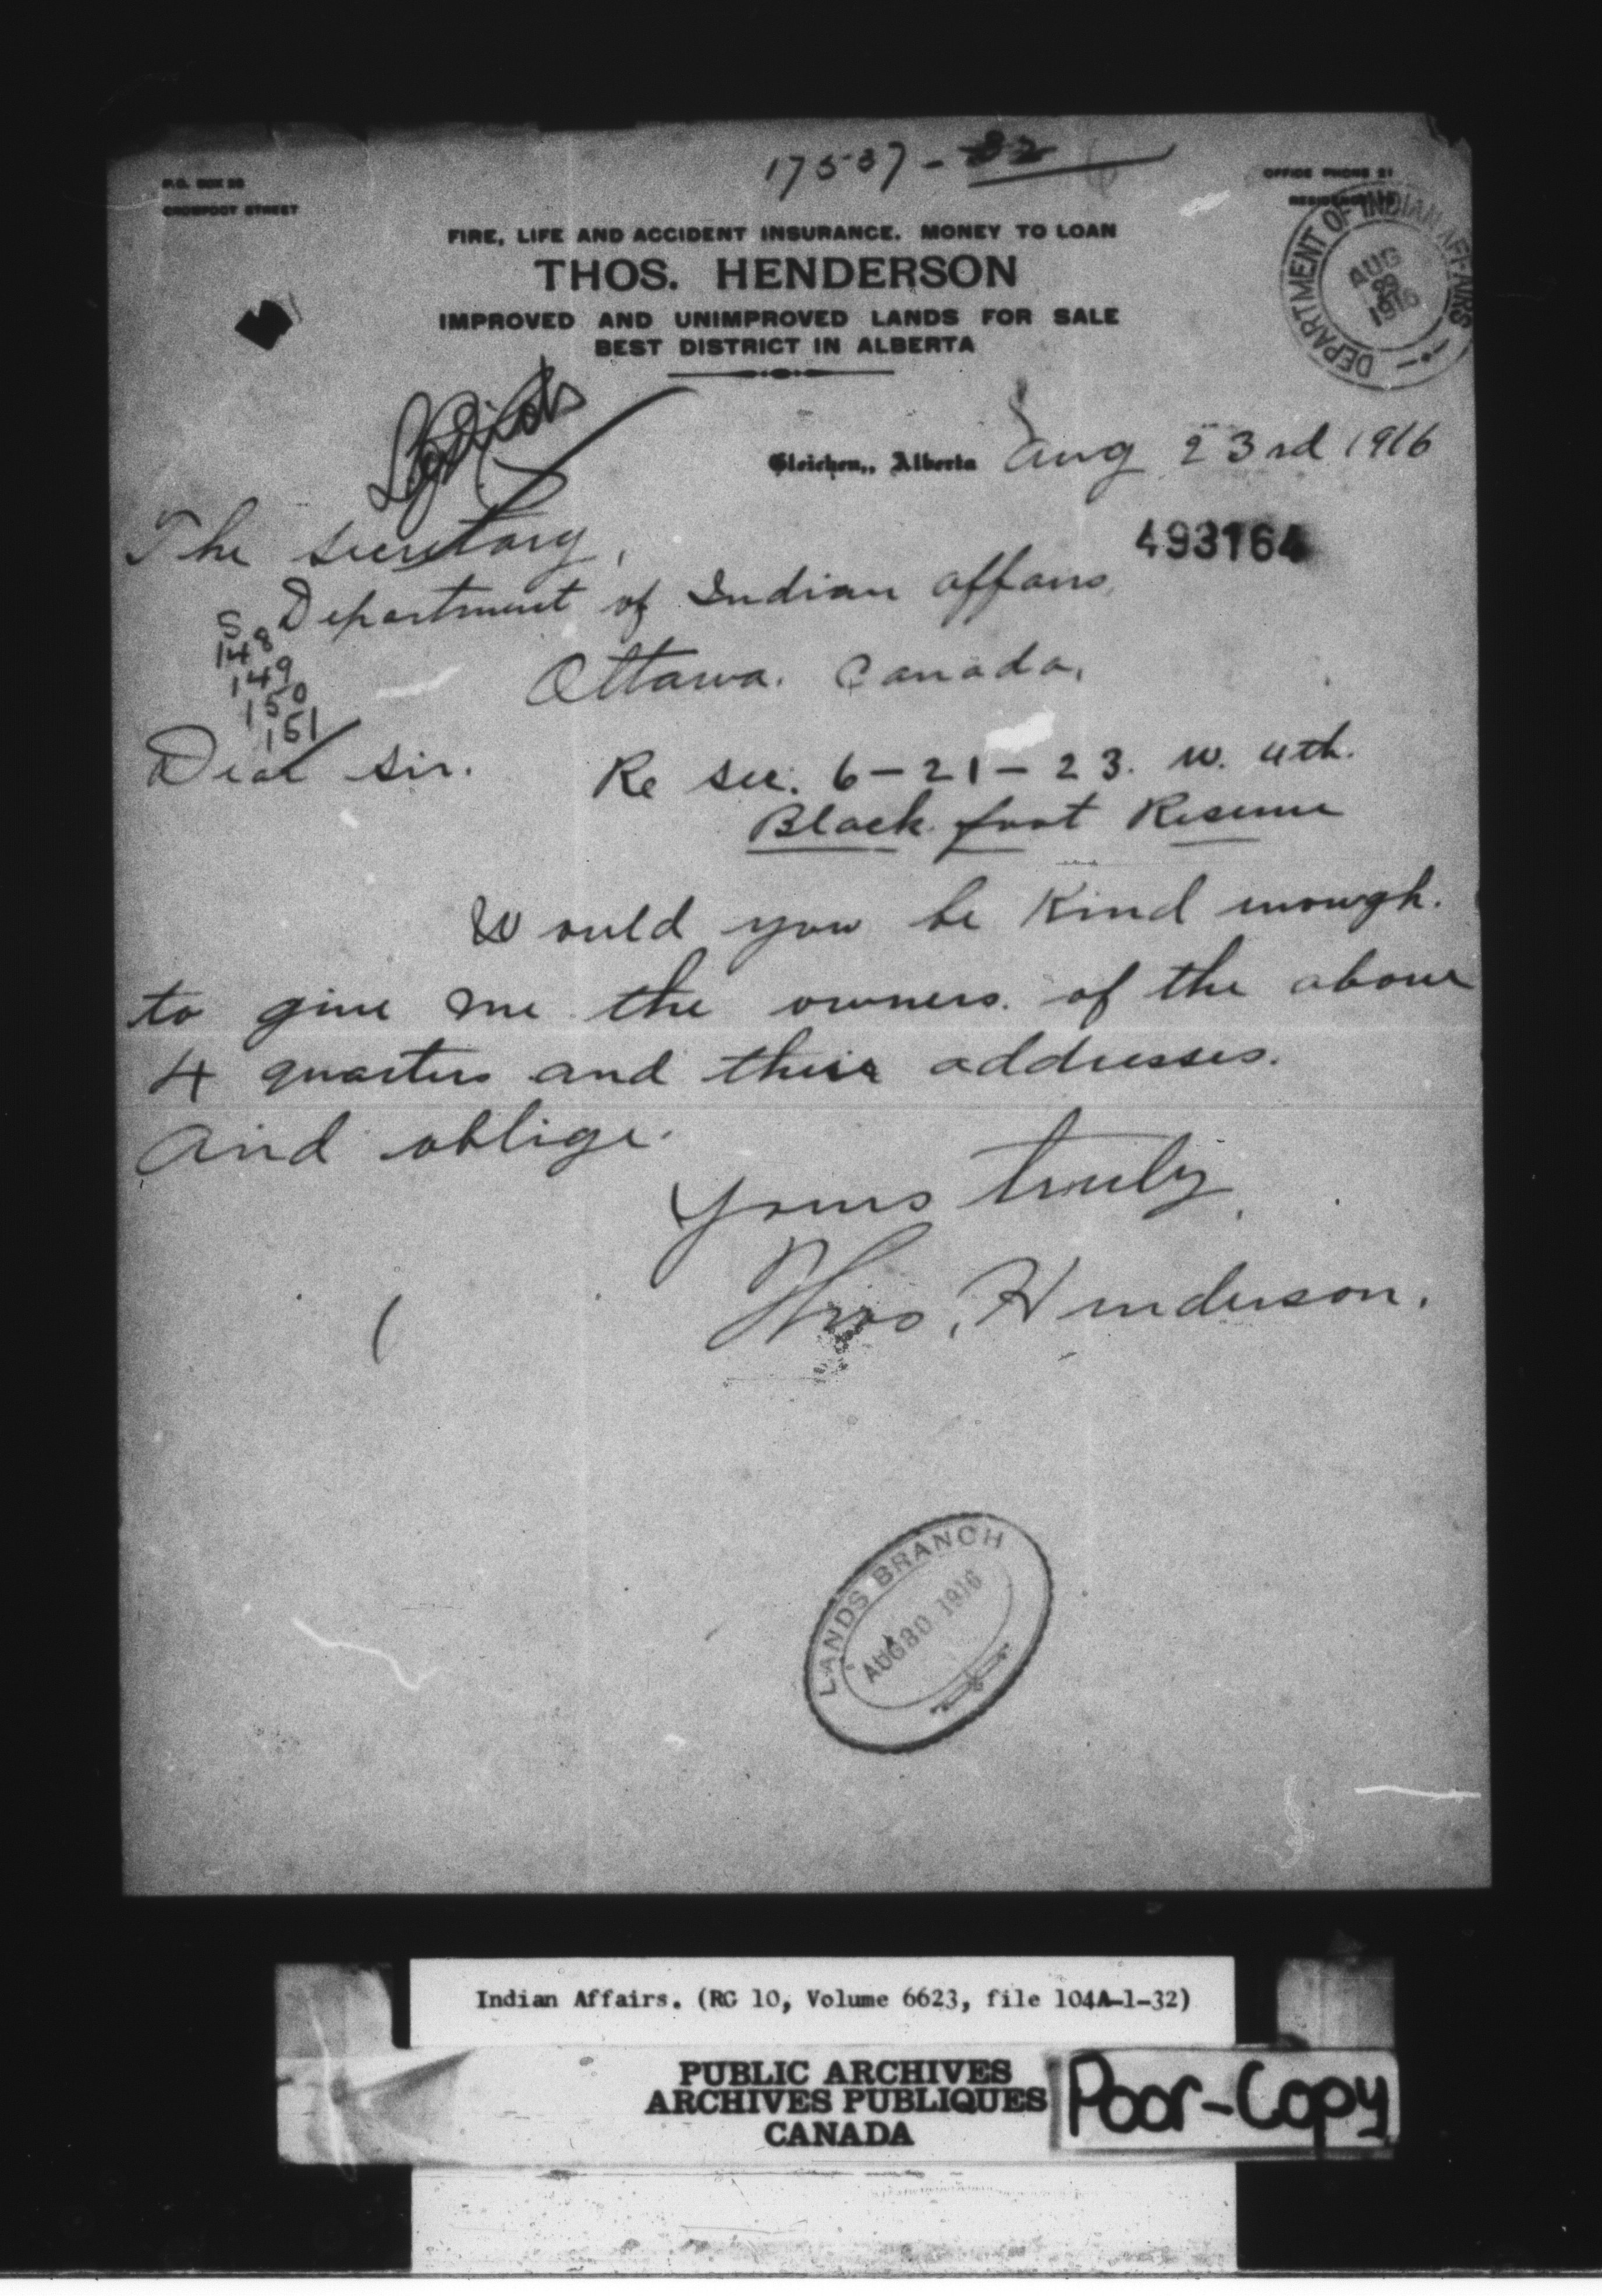 17537-32
P.O. BOX 20
CROWFOOT STREET
OFFICE PHONE 21
FIRE, LIFE AND ACCIDENT INSURANCE. MONEY TO LOAN
THOS. HENDERSON
IMPROVED AND UNIMPROVED LANDS FOR SALE
BEST DISTRICT IN ALBERTA
DEPARTMENT OF INDIAN AFFAIRS
AUG
29
1916
Gleichen,, Alberta Aug 23rd 1916
493164
The Secretary,
Department of Indian Affairs,
Ottawa. Canada,
S
148
149
150
151
Dear Sir.
Re Sec. 6-21-23. W. 4th.
Black foot Reserve
Would you be kind enough.
to give me the owners. of the above
4 quarters and their addresses.
And oblige.
Yours truly,
Thos, Henderson.
LANDS BRANCH
AUG 30 1916
Indian Affairs. (RG 10, Volume 6623, file 104A-1-32)
PUBLIC ARCHIVES
ARCHIVES PUBLIQUES
CANADA
Poor-Copy